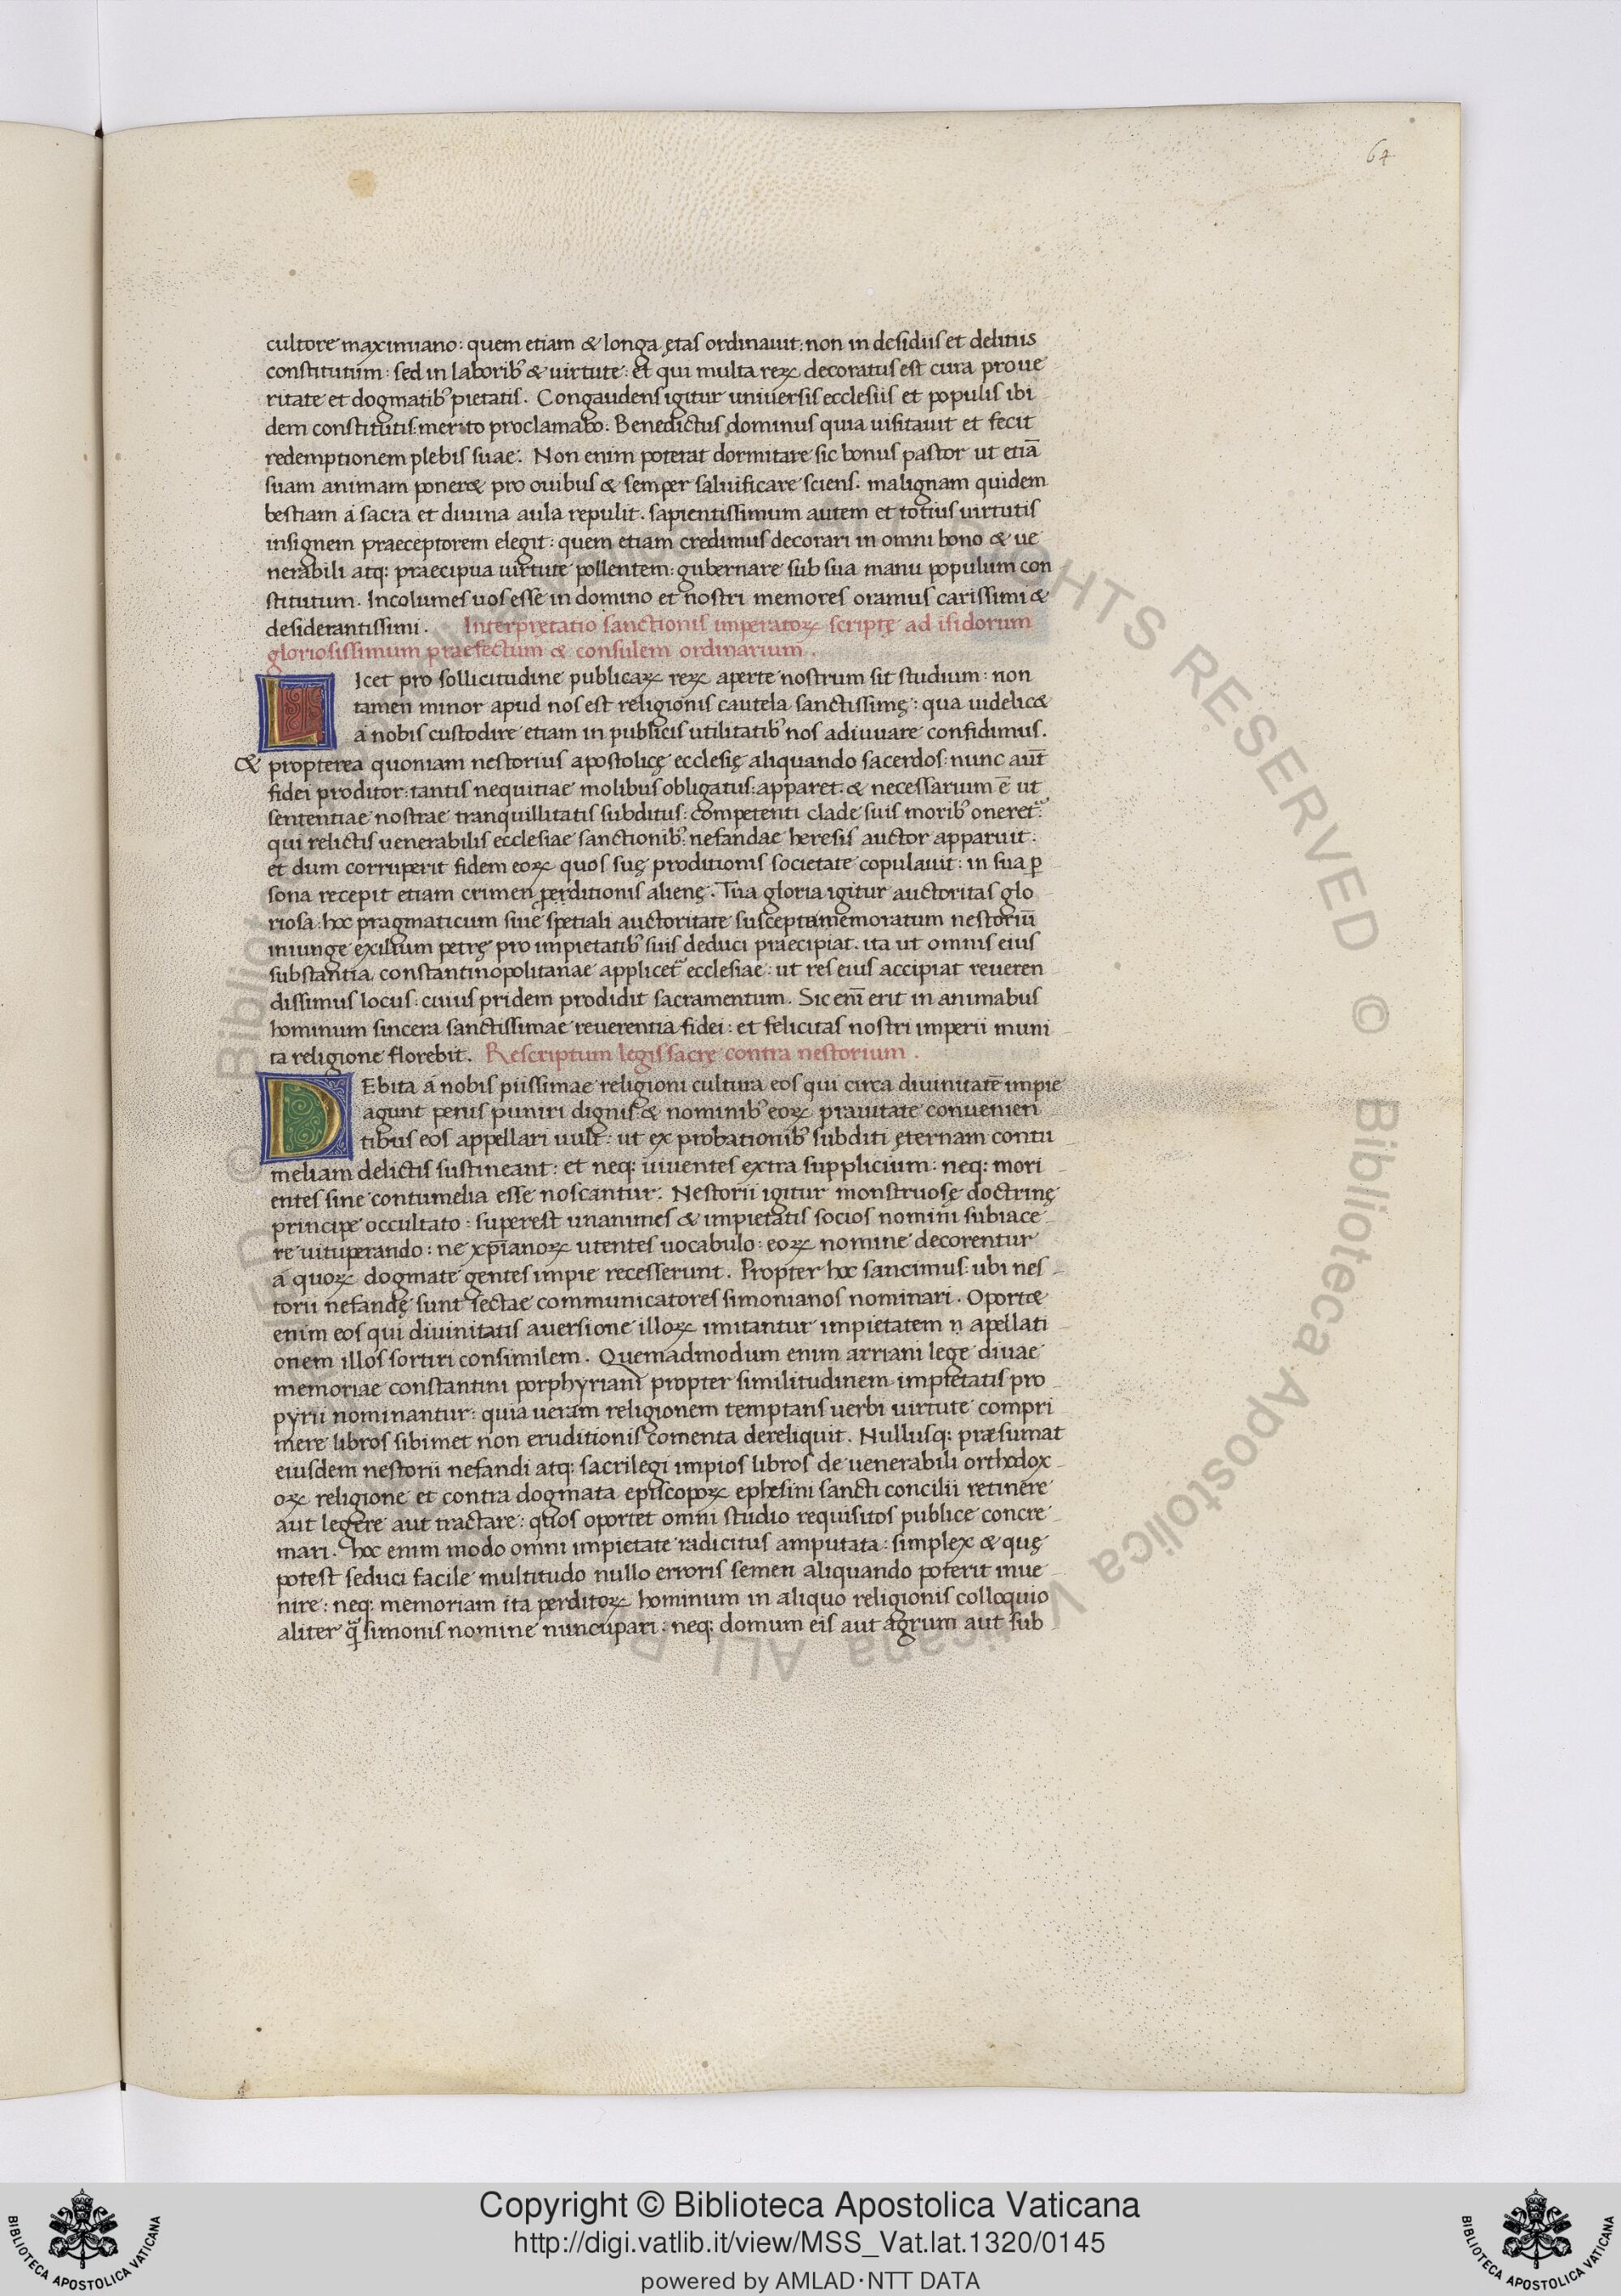 64
cultore maximiano: quem etiam & longa ętas ordinauit: non in desidiis et delitiis
constitutum: sed in laborib; & uirtute: et qui multa reꝝ decoratus est cura pro ue
ritate et dogmatib; pietatis. Congaudens igitur uniuersis ecclesiis et populis ibi
dem constitutis: merito proclamabo: Benedictus dominus quia uisitauit et fecit
redemptionem plebis suae. Non enim poterat dormitare sic bonus pastor ut etiā
suam animam poner& pro ouibus & semper saluificare sciens. malignam quidem
bestiam a sacra et diuina aula repulit. sapientissimum autem et totius uirtutis
insignem praeceptorem elegit: quem etiam credimus decorari in omni bono & ue
nerabili atq; praecipua uirtute pollentem: gubernare sub sua manu populum con
stitutum. Incolumes uos esse in domino et nostri memores oramus carissimi &
desiderantissimi. Interpretatio sanctionis imperatoꝝ scriptę ad isidorum
gloriosissimum praefectum & consulem ordinarium.
LIcet pro sollicitudine publicaꝝ reꝝ aperte nostrum sit studium: non
tamen minor apud nos est religionis cautela sanctissimę: qua uidelic&
a nobis custodire etiam in publicis utilitatib; nos adiuuare confidimus.
& propterea quoniam nestorius apostolicę ecclesię aliquando sacerdos: nunc aūt
fidei proditor: tantis nequitiae molibus obligatus: apparet. & necessarium ē ut
sententiae nostrae tranquillitatis subditus: competenti clade suis morib; oneret᷑:
qui relictis uenerabilis ecclesiae sanctionib; nefandae heresis auctor apparuit:
et dum corruperit fidem eoꝝ quos suę proditionis societate copulauit: in sua ꝑ
sona recepit etiam crimen perditionis alienę. Tua gloria igitur auctoritas glo
riosa: hoc pragmaticum siue spetiali auctoritate suscepta memoratum nestoriū
iniunge exilium petrę pro impietatib; suis deduci praecipiat. ita ut omnis eius
substantia constantinopolitanae applicet᷑ ecclesiae: ut res eius accipiat reueren
dissimus locus: cuius pridem prodidit sacramentum. Sic enī erit in animabus
hominum sincera sanctissimae reuerentia fidei: et felicitas nostri imperii muni
ta religione florebit. Rescriptum legis sacrę contra nestorium.
DEbita a nobis piissimae religioni cultura eos qui circa diuinitatē impie
agunt penis puniri dignis: & nominib; eoꝝ prauitate conuenien
tibus eos appellari uult: ut ex probationib; subditi ęternam contu
meliam delictis sustineant: et neq; uiuentes extra supplicium: neq; mori
entes sine contumelia esse noscantur. Nestorii igitur monstruosę doctrinę
principe occultato: superest unanimes & impietatis socios nomini subiace
re uituperando: ne xp̄ianoꝝ utentes uocabulo: eoꝝ nomine decorentur
a quoꝝ dogmate gentes impie recesserunt. Propter hoc sancimus: ubi nes
torii nefandę sunt sectae communicatores simonianos nominari. Oport&
enim eos qui diuinitatis auersione illoꝝ imitantur impietatem n apellati
onem illos sortiri consimilem. Quemadmodum enim arriani lege diuae
memoriae constantini porphyriani propter similitudinem impietatis pro
pyrii nominantur: quia ueram religionem temptans uerbi uirtute compri
mere libros sibimet non eruditionis comenta dereliquit. Nullusq; præsumat
eiusdem nestorii nefandi atq; sacrilegi impios libros de uenerabili orthodox
oꝝ religione et contra dogmata episcopoꝝ ephesini sancti concilii retinere
aut legere aut tractare: quos oportet omni studio requisitos publice concre
mari. hoc enim modo omni impietate radicitus amputata: simplex & quę
potest seduci facile multitudo nullo erroris semen aliquando poterit inue
nire: neq; memoriam ita perditoꝝ hominum in aliquo religionis colloquio
aliter q̄ simonis nomine nuncupari: neq; domum eis aut agrum aut sub
Copyright © Biblioteca Apostolica Vaticana
http://digi.vatlib.it/view/MSS_Vat.lat.1320/0145
powered by AMLAD·NTT DATA
BIBLIOTECA APOSTOLICA VATICANA
BIBLIOTECA APOSTOLICA VATICANA